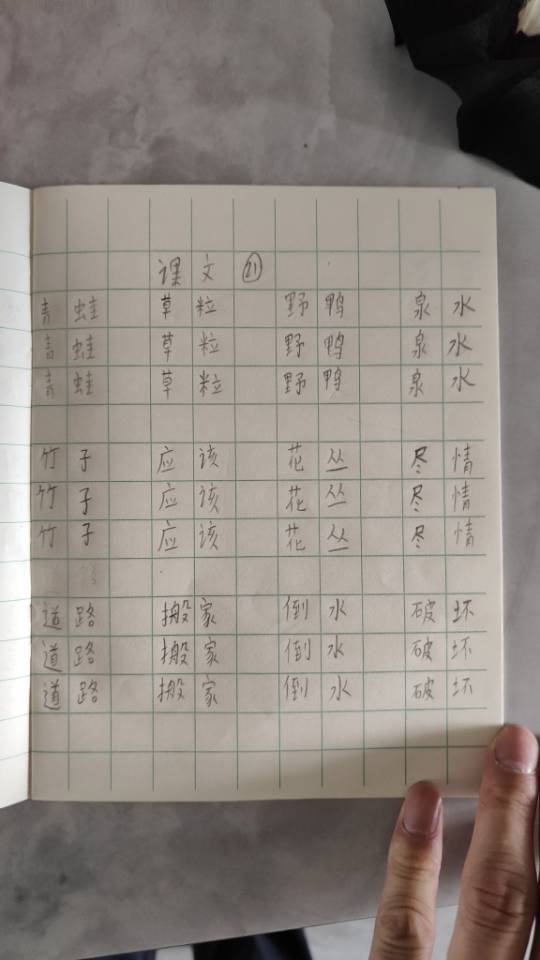 课文 21
青蛙 草粒 野鸭 泉水
青蛙 草粒 野鸭 泉水
青蛙 草粒 野鸭 泉水
竹子 应该 花丛 尽情
竹子 应该 花丛 尽情
竹子 应该 花丛 尽情
道路 搬家 倒水 破坏
道路 搬家 倒水 破坏
道路 搬家 倒水 破坏